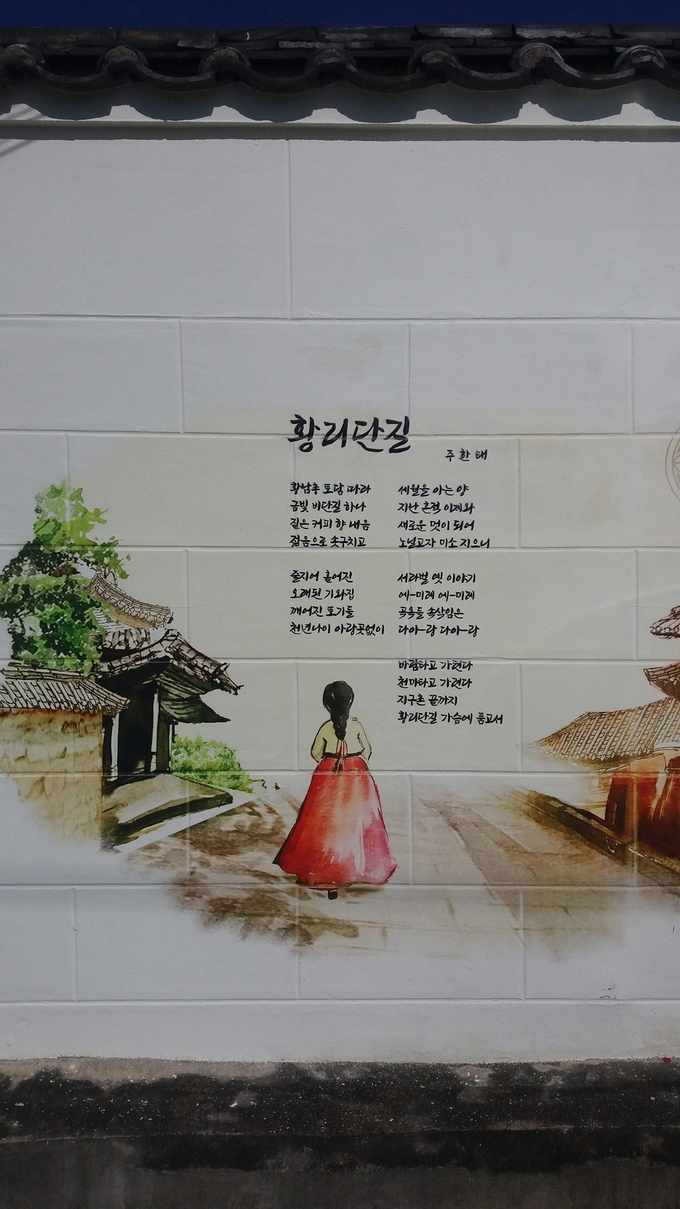 황리단길
주한태
황남총 토담 따라
금빛 비단길 하나
짙은 커피 향 내음
젊음으로 솟구치고
줄지어 흩어진
오래된 기와집
깨어진 토기들
천년나이 아랑곳없이
세월을 아는 양
지난 흔적 이제와
새로운 멋이 되어
노널고자 미소 지으니
서라벌 옛 이야기
에-미레 에-미레
곡옥들 속삭임은
다아-랑 다아-랑
바람타고 가련다
천마타고 가련다
지구촌 끝까지
황리단길 가슴에 품고서